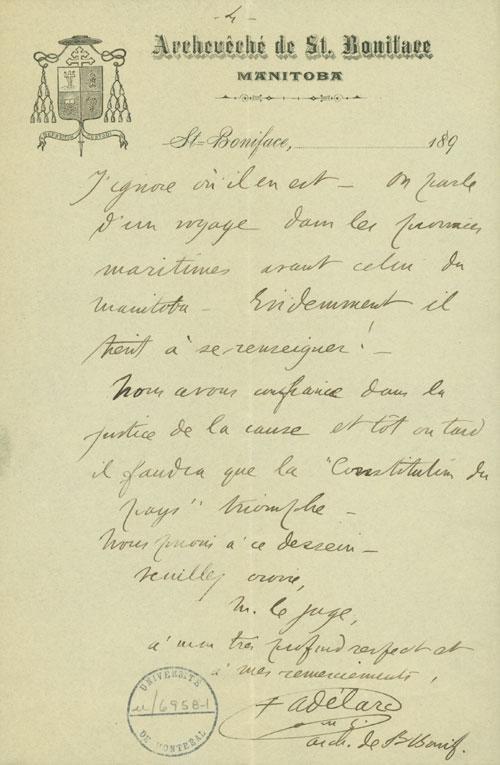 - 4 -
Archevêché de St. Boniface
MANITOBA
St-Boniface, 189
J'ignore où il en est — On parle
d'un voyage dans les provinces
maritimes avant celui du
Manitoba — Evidemment il
tient à se renseigner ! —
Nous avons confiance dans la
justice de la cause et tôt ou tard
il faudra que la "Constitution du
pays" triomphe —
Nous prions à ce dessein —
Veuillez croire,
M. le juge,
à mon très profond respect et
à mes remerciements,
† Adélard
arch. de St Bonif.
UNIVERSITÉ
u/6958-1
DE MONTREAL